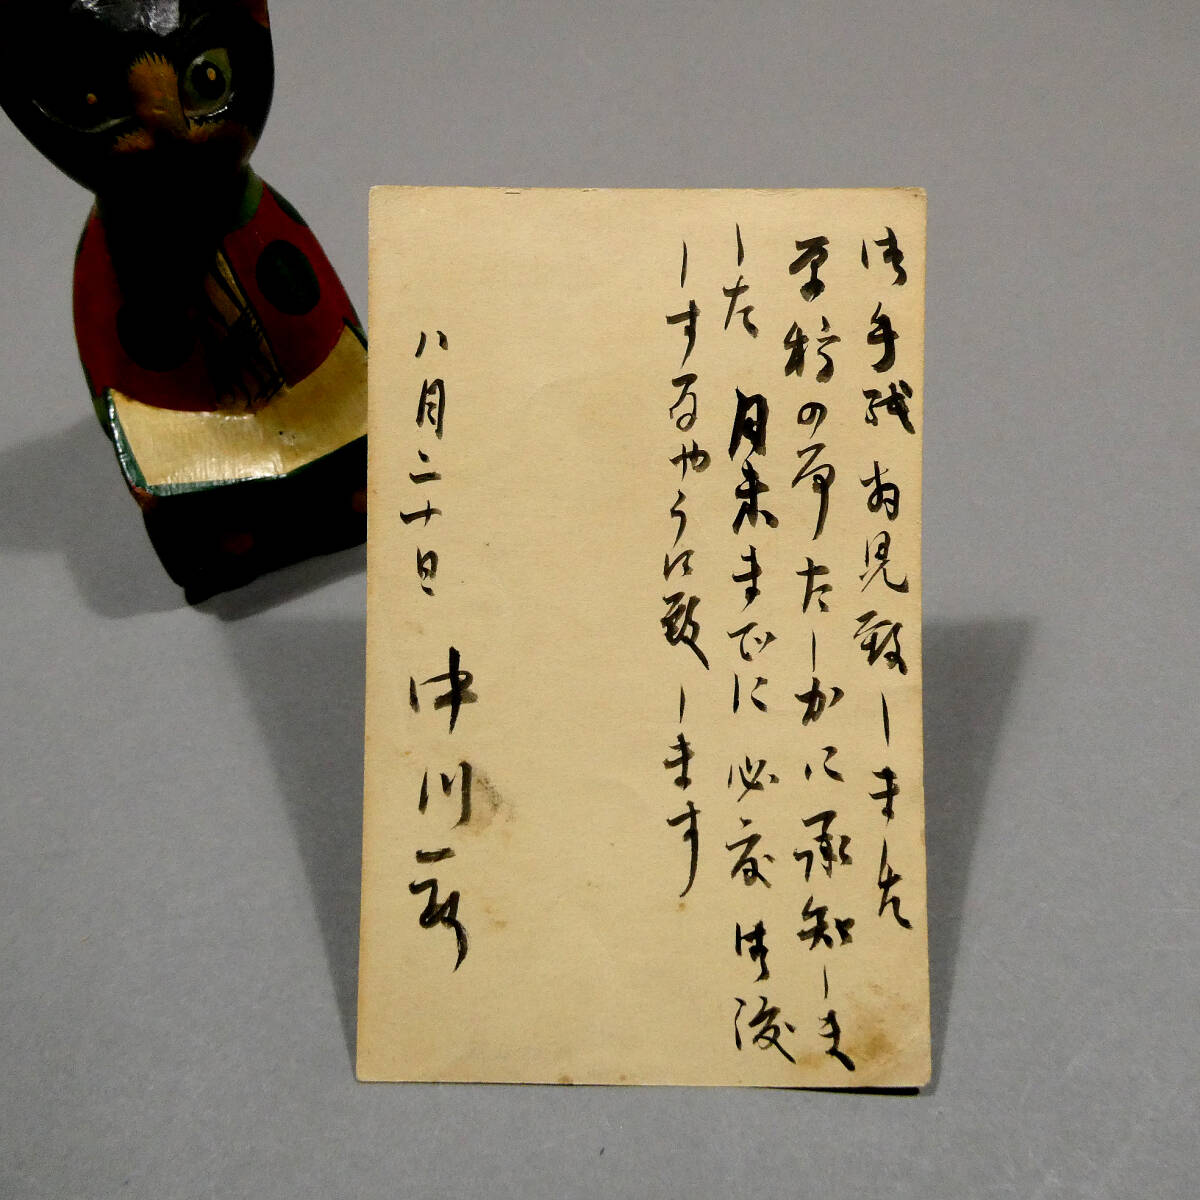 御手紙拝見致しました
原稿の事たしかに承知しま
した 月末までに必度御渡
しするやうに致します
八月二十日
中川一政